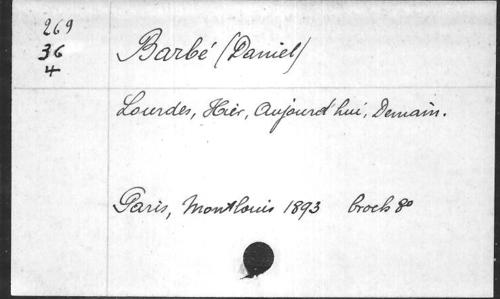 269
36
4
Barbé (Daniel)
Lourdes, Hier, Aujourd'hui, Demain.
Paris, Montlouis 1893 broch 8º